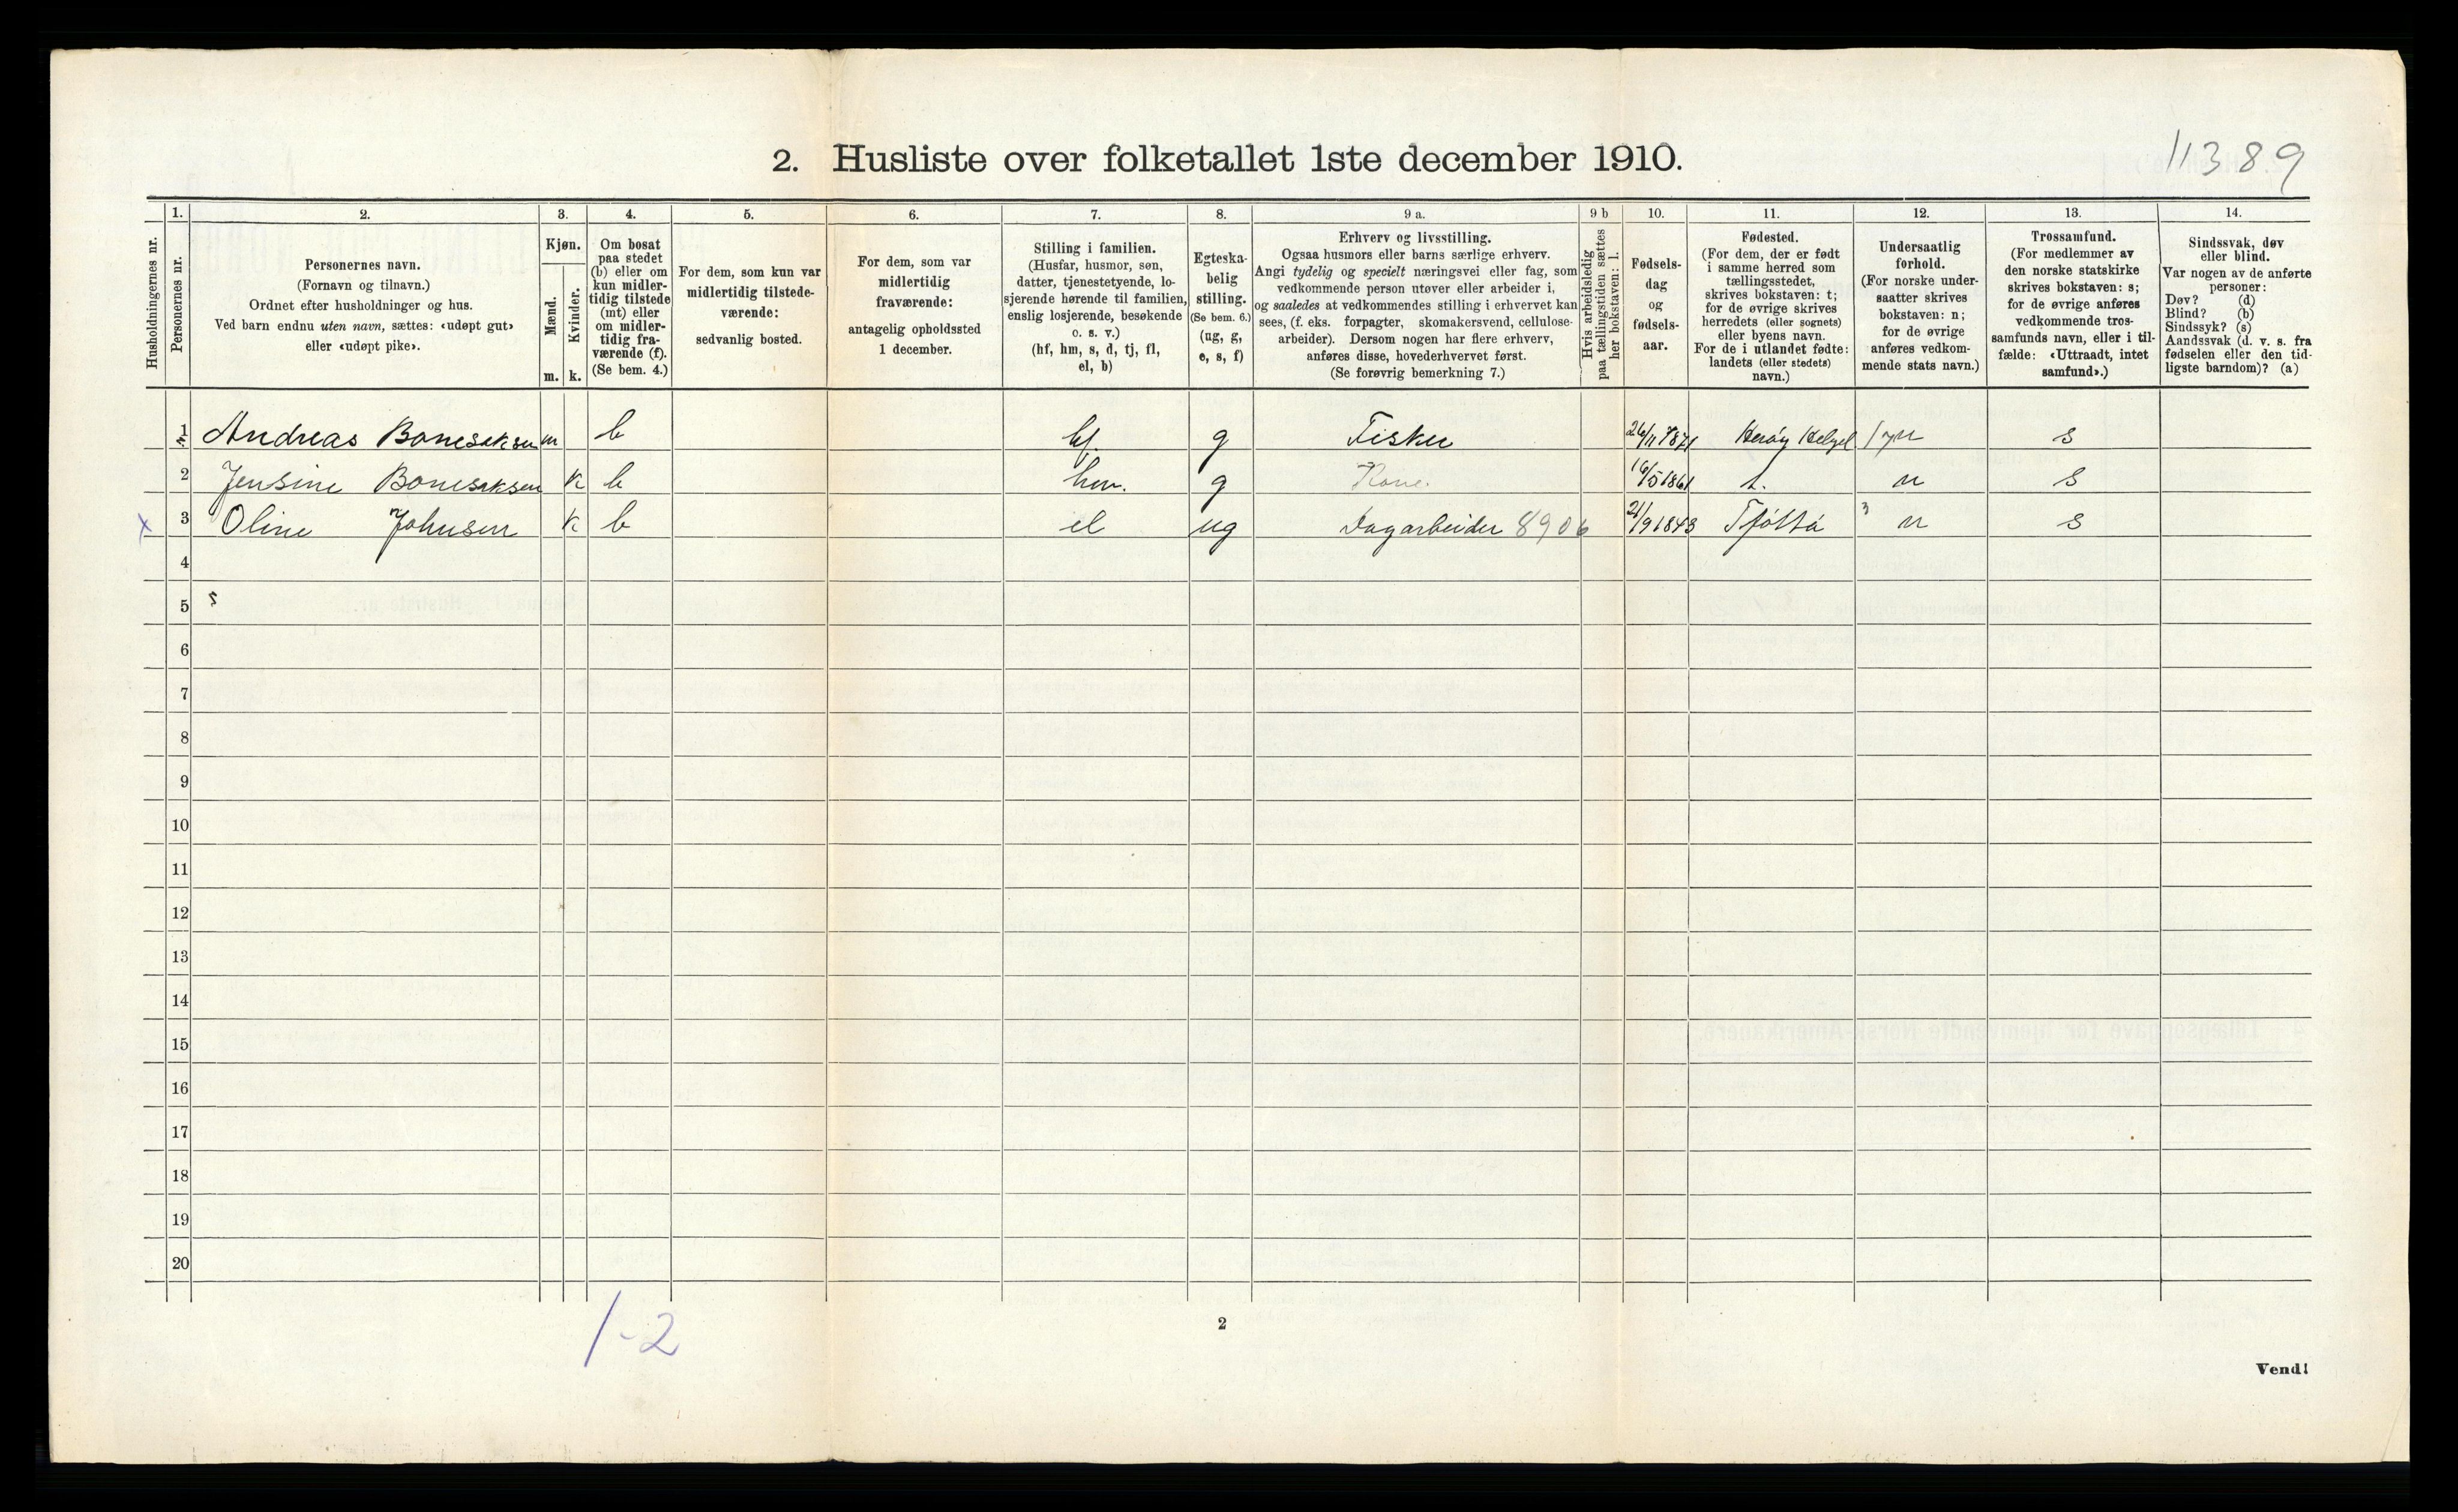 11389
2. Husliste over folketallet 1ste december 1910.
Husholdningernes nr.
1.
Personernes nr.
2.
Personernes navn.
(Fornavn og tilnavn.)
Ordnet efter husholdninger og hus.
Ved barn endnu uten navn, sættes: «udøpt gut»
eller «udøpt pike».
3.
Kjøn.
Mænd.
Kvinder.
m. k.
4.
Om bosat
paa stedet
(b) eller om
kun midler-
tidig tilstede
(mt) eller
om midler-
tidig fra-
værende (f).
(Se bem. 4.)
5.
For dem, som kun var
midlertidig tilstede-
værende:
sedvanlig bosted.
6.
For dem, som var
midlertidig
fraværende:
antagelig opholdssted
1 december.
7.
Stilling i familien.
(Husfar, husmor, søn,
datter, tjenestetyende, lo-
sjerende hørende til familien,
enslig losjerende, besøkende
o. s. v.)
(hf, hm, s, d, tj, fl,
el, b)
8.
Egteska-
belig
stilling.
(Se bem. 6.)
(ug, g,
e, s, f)
9 a.
Erhverv og livsstilling.
Ogsaa husmors eller barns særlige erhverv.
Angi tydelig og specielt næringsvei eller fag, som
vedkommende person utøver eller arbeider i,
og saaledes at vedkommendes stilling i erhvervet kan
sees, (f. eks. forpagter, skomakersvend, cellulose-
arbeider). Dersom nogen har flere erhverv,
anføres disse, hovederhvervet først.
(Se forøvrig bemerkning 7.)
9 b
Hvis arbeidsledig
paa tællingstiden sættes
her bokstaven: l.
10.
Fødsels-
dag
og
fødsels-
aar.
11.
Fødested.
(For dem, der er født
i samme herred som
tællingsstedet,
skrives bokstaven: t;
for de øvrige skrives
herredets (eller sognets)
eller byens navn.
For de i utlandet fødte:
landets (eller stedets)
navn.)
12.
Undersaatlig
forhold.
(For norske under-
saatter skrives
bokstaven: n;
for de øvrige
anføres vedkom-
mende stats navn.)
13.
Trossamfund.
(For medlemmer av
den norske statskirke
skrives bokstaven: s;
for de øvrige anføres
vedkommende tros-
samfunds navn, eller i til-
fælde: «Uttraadt, intet
samfund».)
14.
Sindssvak, døv
eller blind.
Var nogen av de anførte
personer:
Døv? (d)
Blind? (b)
Sindssyk? (s)
Aandssvak (d. v. s. fra
fødselen eller den tid-
ligste barndom)? (a)
1 Andreas Bonesaksen m b hf. g Fisker 26/11 1871 Herøy Helgel n s
2 Jensine Bonesaksen k b hm. g Kone. 16/5 1861 t. n s
x 3 Oline Johnsen k b el ug Dagarbeider 8906 21/9 1843 Tjøtta 3 n s
4
5
6
7
8
9
10
11
12
13
14
15
16
17
18
19
20
1-2
2
Vend!